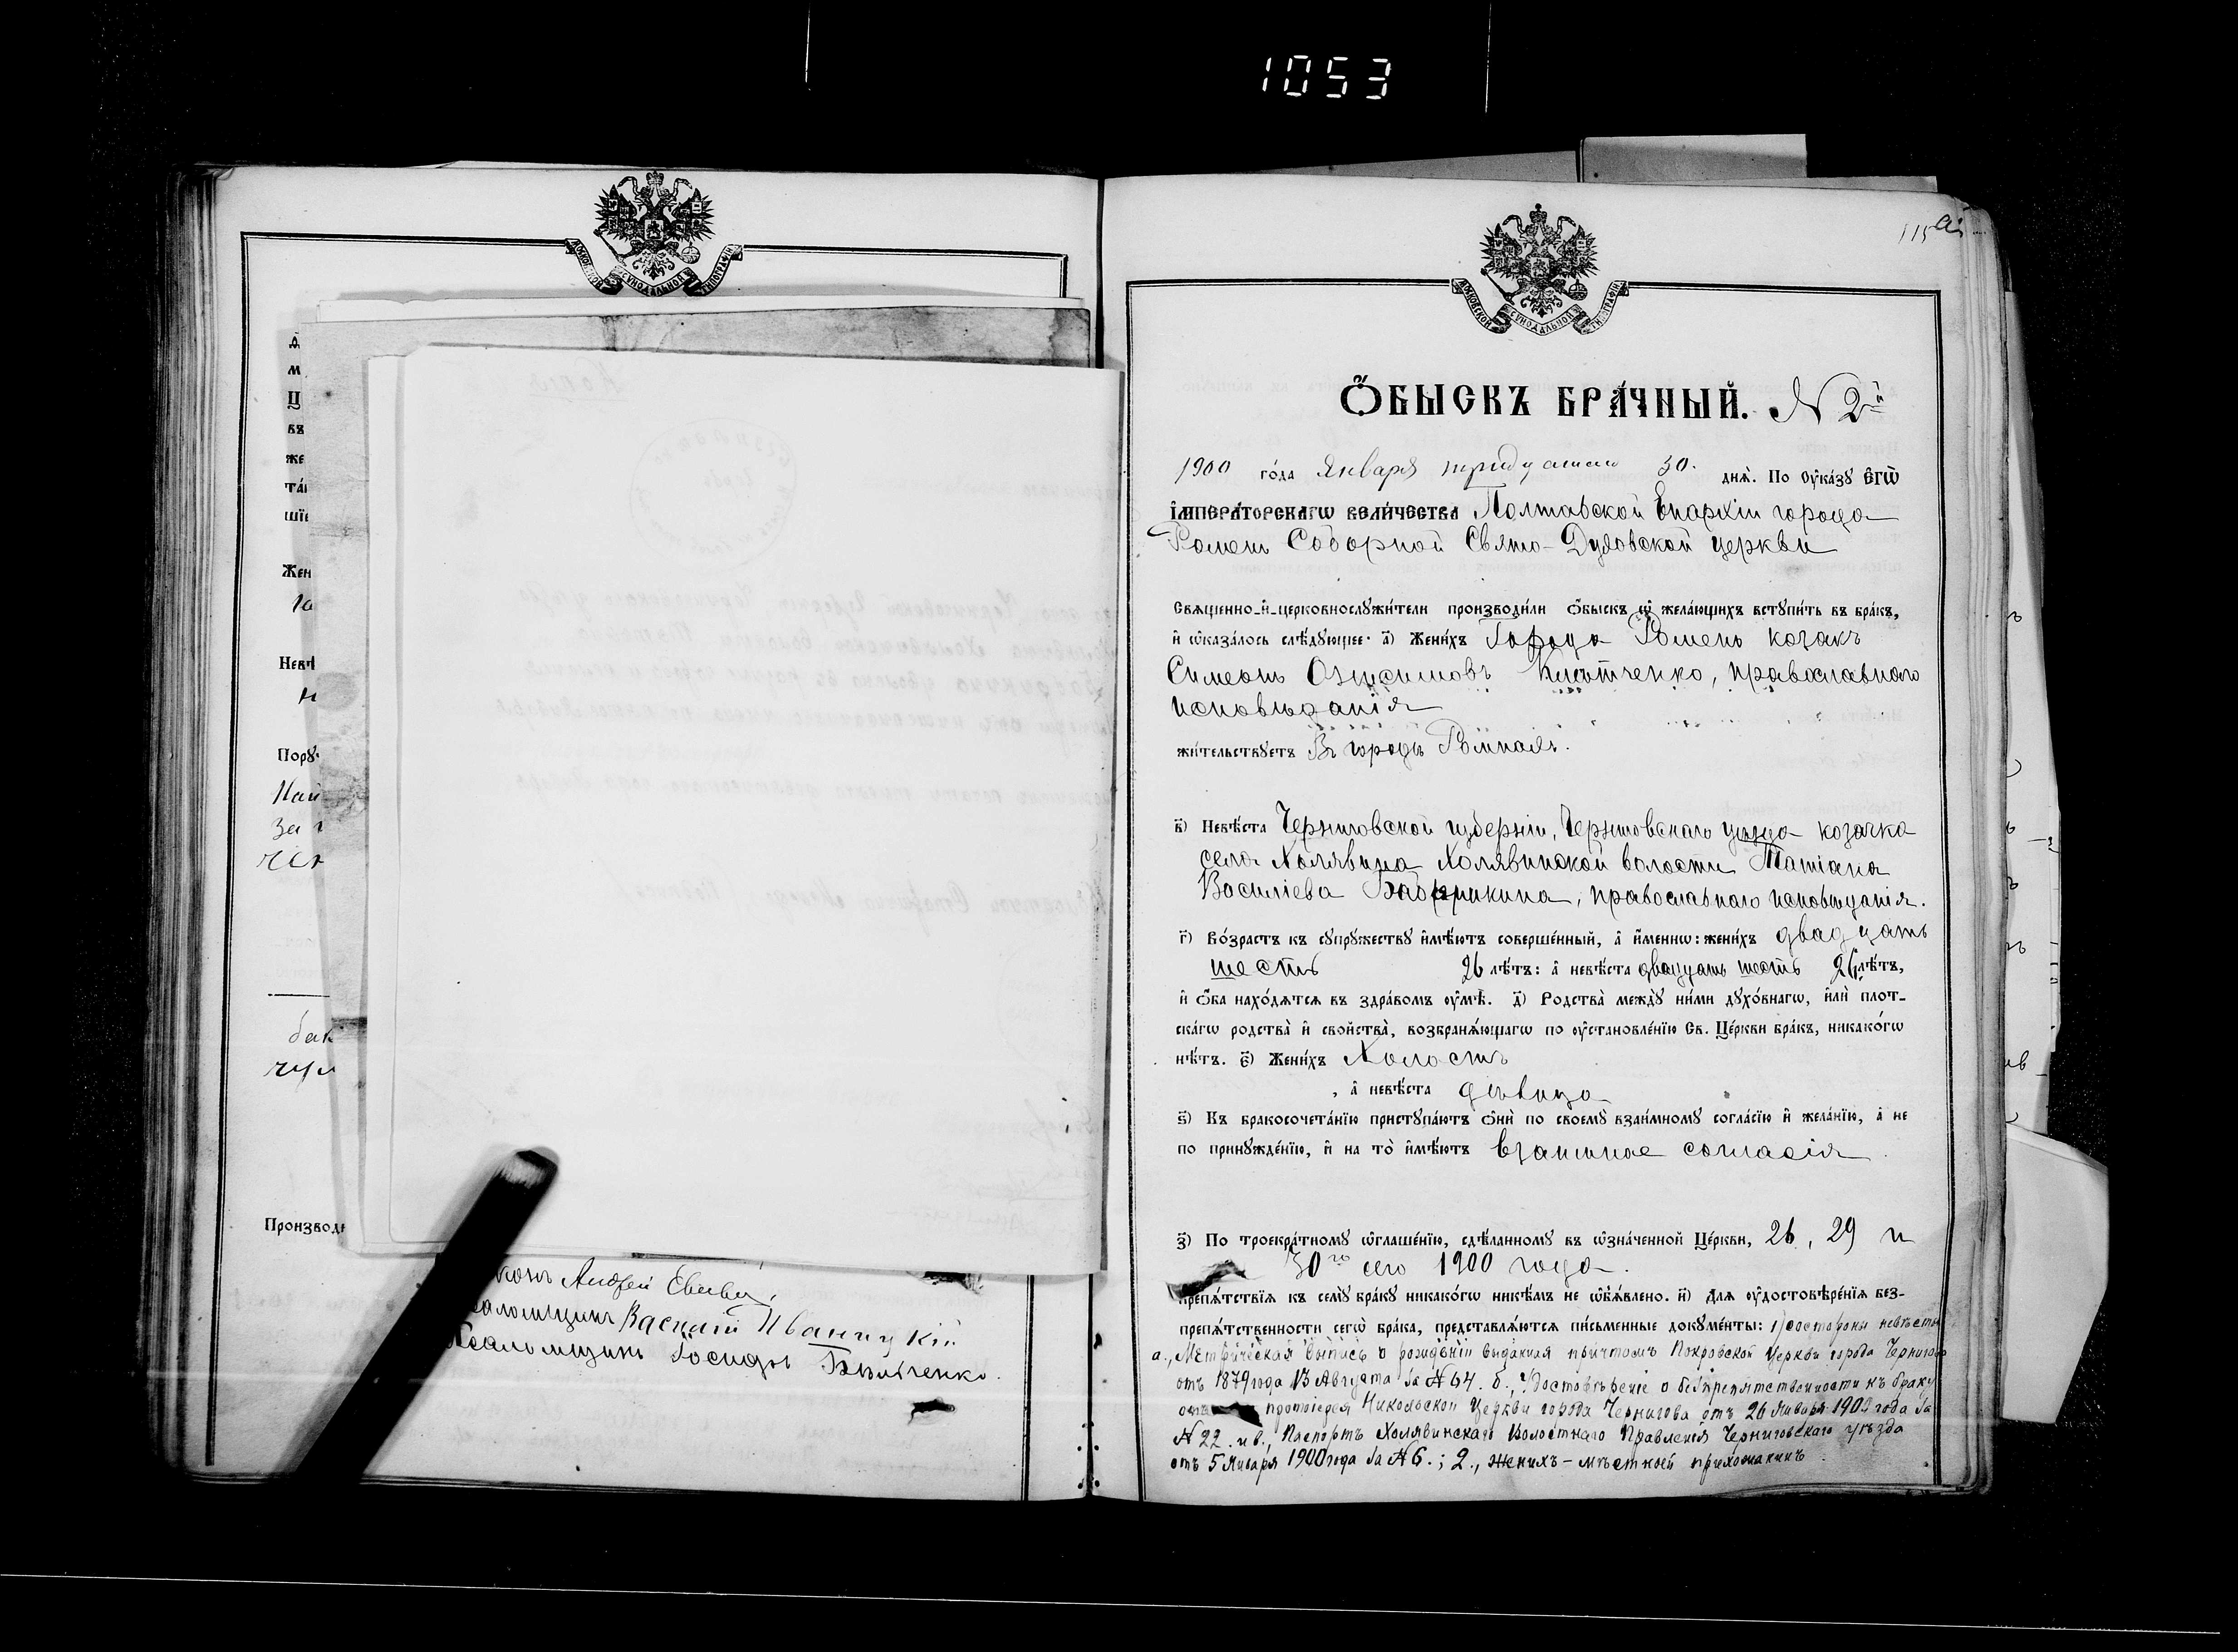 1053
МОСКОВСКОЙ СУНОДАЛЬНОЙ ТИПОГРАФІИ
Жен
Порꙋ
Най
за
бак
Произво
Андрей Ев
Василій Иваницкій
Псаломщикъ Госифъ
115
МОСКОВСКОЙ СУНОДАЛЬНОЙ ТИПОГРАФІИ
Ѻ҆БЫСКЪ БРА́ЧНЫЙ. N 2й
1900 го́да Января тридцатаго 30. днѧ̀. По Ѹ҆ка́зꙋ Є҆гѡ̀
І҆МПЕРА́ТОРСКАГѠ ВЕЛИ́ЧЕСТВА Полтавской Епархіи города
Роменъ Соборной Свято-Духовской церкви
Свѧщенно-и҆-церковнослꙋжи́тели производи́ли ѻ҆́быскъ ѡ҆ жела́ющихъ встꙋпи́ть въ бра́къ,
и҆ ѡ҆каза́лось слѣ́дꙋющее: а҃) Жени́хъ Города Роменъ козакъ
Симеонъ Онисимовъ православнаго
исповѣданія
жи́тельствꙋетъ Въ городѣ Ромнахъ.
в҃) Невѣ́ста Черниговской губерніи, Черниговскаго уѣзда козачка
села Холявина Холявинской волости Татіана
Василіева православнаго исповѣданія.
г҃) Во́зрастъ къ сꙋпрꙋ́жествꙋ и҆мѣ́ютъ соверше́нный, а҆ и҆́меннѡ: жени́хъ двадцать
шесть 26 лѣ́тъ: а҆ невѣ́ста двадцать шесть 26 лѣ́тъ,
и҆ ѻ҆́ба нахо́дѧтсѧ въ здра́вомъ ѹ҆мѣ̀. д҃) Родства̀ междꙋ̀ ни́ми дꙋхо́внагѡ, и҆лѝ плот-
ска́гѡ родства̀ и҆ сво́йства̀, возбранѧ́ющагѡ по ѹ҆становле́нїю Св. Це́ркви бра́къ, никако́гѡ
нѣ́тъ. є҃) Жени́хъ Холостъ
, а҆ невѣ́ста дѣвица
ѕ҃) Къ бракосочета́нїю пристꙋпа́ютъ ѻ҆нѝ по своемꙋ̀ взаи́мномꙋ согла́сїю и҆ жела́нїю, а҆ не
по принꙋжде́нїю, и҆ на то̀ и҆мѣ́ютъ взаимное согласія
з҃) По троекра́тномꙋ ѡ҆глаше́нїю, сдѣ́ланномꙋ въ ѡ҆зна́ченной Це́ркви, 26, 29 и
30го сего 1900 года.
препѧ́тствїѧ къ семꙋ̀ бра́кꙋ никако́гѡ никѣ́мъ не ѡ҆б̾ѧ́влено. и҃) Длѧ ѹ҆достовѣре́нїѧ без-
препѧ́тственности сегѡ̀ бра́ка, представлѧ́ютсѧ пи́сьменные докꙋме́нты: 1) со стороны невѣсты
а., Метрическая выпись о рожденіи выданная причтомъ Покровской Церкви города Чернигова
отъ 1879 года 13 Августа за № 64. б., Удостовѣреніе о безпрепятственности къ браку
протоіерея Никольской Церкви города Чернигова отъ 26 Января 1900 года за
№ 22. и в., Паспортъ Холявинскаго Волостнаго Правленія Черниговскаго уѣзда
отъ 5 Января 1900 года за № 6.; 2., женихъ – мѣстной прихожанинъ